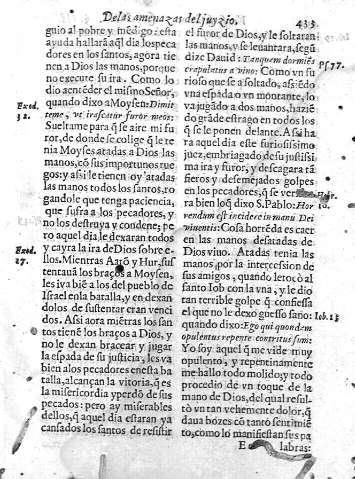 De las amenazas del juyzio. 433
guio al pobre y médigo: esta
ayuda hallará aql dia los peca
dores en los santos, agora tie
nen a Dios las manos, porque
no execute su ira. Como lo
dio a entéder el mismo Señor,
quando dixo a Moysen: Dimit
teme, vt irascatur furor meus:
Exod.
32.
Sueltame para q̃ se aire mi fu
ror, de donde se colige q̃ le te
nia Moyses atadas a Dios las
manos, cõ sus importunos rue
gos: y assi le tienen oy atadas
las manos todos los santos, ro
gandole que tenga paciencia,
que sufra a los pecadores, y
no los destruya y condene; pe
ro aquel dia le dexaran todos
y cayra la ira de Dios sobre e-
llos. Mientras Aarõ y Hur, sus
Exod.
17.
tentauã los braços a Moysen,
les iva biẽ a los del pueblo de
Israel en la batalla, y en dexan
dolos de sustentar eran venci
dos. Assi aora miẽtras los san
tos tienẽ los braços a Dios, y
no le dexan bracear y jugar
la espada de su justicia, les va
bien a los pecadores en esta ba
talla, alcançan la vitoria, q̃ es
la misericordia y perdõ de sus
pecados: pero ay miserables
dellos, q̃ aquel dia estaran ya
cansados los santos de resistir
el furor de Dios, y le soltaran
las manos, y se leuantara, segũ
dize Dauid: Tanquam dormiẽs
crapulatus a vino: Como vn fu
Ps. 77.
rioso que se a soltado, asiẽdo
vna espada o vn montante, lo
va jugãdo a dos manos, hazié
do grãde estrago en todos los
q̃ se le ponen delante. Assi ha
ra aquel dia este furiosissimo
juez, embriagado de su justissi
ma ira y furor, y descagara tã
fieros y desmejados golpes
en los pecadores, q̃ se ve
ra bien lo q̃ dixo S. Pablo: Hor
10.
rendum est incidere in manus Dei
viuentis: Cosa horrẽda es caer
en las manos desatadas de
Dios viuo. Atadas tenia las
manos, por la intercession de
sus amigos, quando le tocò al
santo Iob con la vna, y le dio
tan terrible golpe q̃ confiessa
el que no le dexo guesso sano:
quando dixo: Ego qui quondam
Iob. 15
opulentus repente contritus sum:
Yo soy aquel q̃ me vide muy
opulento, y repentinamente
me hallo todo molido y todo
procedio de vn toque de la
mano de Dios, del qual resul-
tò vn tan vehemente dolor, q̃
daua bozes cõ tanto sentimiẽ
to, como lo manifiestan sus pa
E labras: